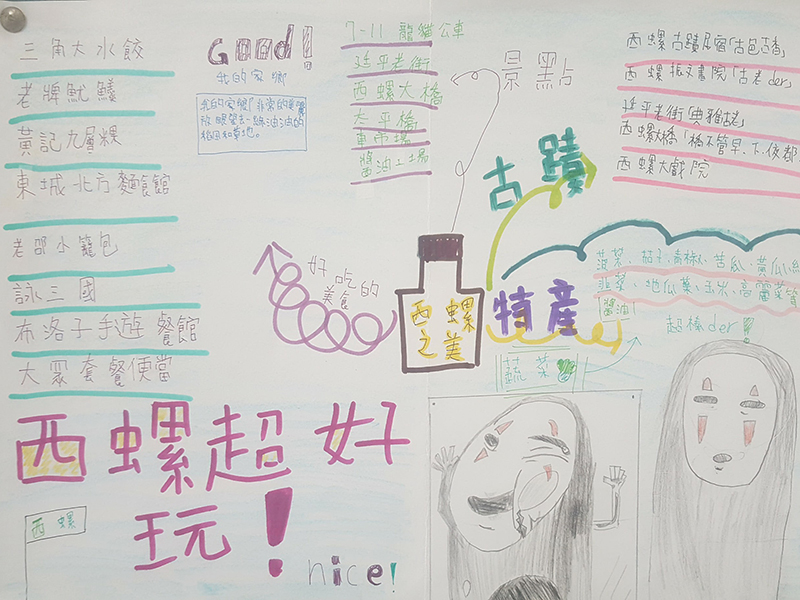 三角大水餃
老牌魷鱻
黃記九層粿
東城北方麵食館
老邵小籠包
詠三國
布洛子手遊餐館
大眾套餐便當
Good!
我的家鄉
我的家鄉
綠油油的
稻田和草地。
7-11 龍貓公車
延平老街
西螺大橋
太平橋
東市場
醬油工場
景點
西螺振文書院「古老der」
延平老街「典雅古老」
西螺大橋「橋不管早、下、夜都
西螺大戲院
古蹟
好吃的
美食
西螺
之美
特產
菠菜、茄子、青椒、苦瓜、黃瓜、絲
韭菜、地瓜葉、玉米、高麗菜
醬油!
超棒der
蔬菜
西螺超好
玩!
西螺
nice!